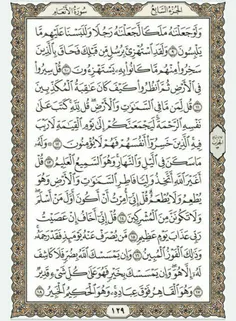 الجزء السابع سورة الأنعام
وَلَوْ جَعَلْنَٰهُ مَلَكًا لَّجَعَلْنَٰهُ رَجُلًا وَلَلَبَسْنَا عَلَيْهِم مَّا
يَلْبِسُونَ ۝٩ وَلَقَدِ ٱسْتُهْزِئَ بِرُسُلٍ مِّن قَبْلِكَ فَحَاقَ بِٱلَّذِينَ
سَخِرُوا۟ مِنْهُم مَّا كَانُوا۟ بِهِۦ يَسْتَهْزِءُونَ ۝١٠ قُلْ سِيرُوا۟
فِى ٱلْأَرْضِ ثُمَّ ٱنظُرُوا۟ كَيْفَ كَانَ عَٰقِبَةُ ٱلْمُكَذِّبِينَ
۝١١ قُل لِّمَن مَّا فِى ٱلسَّمَٰوَٰتِ وَٱلْأَرْضِ قُل لِّلَّهِ كَتَبَ عَلَىٰ
نَفْسِهِ ٱلرَّحْمَةَ لَيَجْمَعَنَّكُمْ إِلَىٰ يَوْمِ ٱلْقِيَٰمَةِ لَا رَيْبَ
فِيهِ ٱلَّذِينَ خَسِرُوٓا۟ أَنفُسَهُمْ فَهُمْ لَا يُؤْمِنُونَ ۝١٢ وَلَهُۥ
مَا سَكَنَ فِى ٱلَّيْلِ وَٱلنَّهَارِ وَهُوَ ٱلسَّمِيعُ ٱلْعَلِيمُ ۝١٣ قُلْ
أَغَيْرَ ٱللَّهِ أَتَّخِذُ وَلِيًّا فَاطِرِ ٱلسَّمَٰوَٰتِ وَٱلْأَرْضِ وَهُوَ
يُطْعِمُ وَلَا يُطْعَمُ قُلْ إِنِّىٓ أُمِرْتُ أَنْ أَكُونَ أَوَّلَ مَنْ أَسْلَمَ
وَلَا تَكُونَنَّ مِنَ ٱلْمُشْرِكِينَ ۝١٤ قُلْ إِنِّىٓ أَخَافُ إِنْ عَصَيْتُ
رَبِّى عَذَابَ يَوْمٍ عَظِيمٍ ۝١٥ مَّن يُصْرَفْ عَنْهُ يَوْمَئِذٍ فَقَدْ رَحِمَهُۥ
وَذَٰلِكَ ٱلْفَوْزُ ٱلْمُبِينُ ۝١٦ وَإِن يَمْسَسْكَ ٱللَّهُ بِضُرٍّ فَلَا كَاشِفَ
لَهُۥٓ إِلَّا هُوَ وَإِن يَمْسَسْكَ بِخَيْرٍ فَهُوَ عَلَىٰ كُلِّ شَىْءٍ قَدِيرٌ
۝١٧ وَهُوَ ٱلْقَاهِرُ فَوْقَ عِبَادِهِۦ وَهُوَ ٱلْحَكِيمُ ٱلْخَبِيرُ ۝١٨
١٢٩